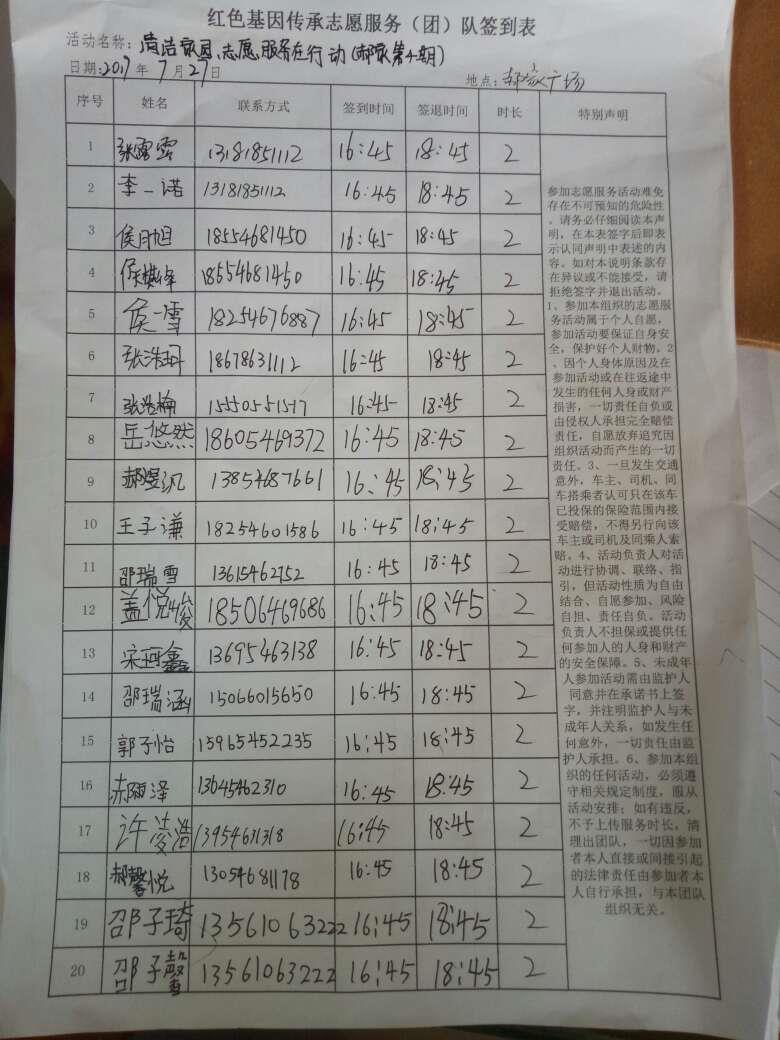 红色基因传承志愿服务（团）队签到表
活动名称：清洁家园、志愿服务在行动（郝家第4期）
日期：2017年7月27日 地点：郝家广场
序号 姓名 联系方式 签到时间 签退时间 时长 特别声明
1 张露雪 13181851112 16:45 18:45 2
2 李一诺 13181851112 16:45 18:45 2
3 侯月旭 18554681450 16:45 18:45 2
4 侯 18654681450 16:45 18:45 2
5 侯一雪 18254676887 16:45 18:45 2
6 张浩珂 18678631112 16:45 18:45 2
7 张浩梅 15550551517 16:45 18:45 2
8 岳悠然 18605469372 16:45 18:45 2
9 郝旻汎 13854687661 16:45 18:45 2
10 王子谦 18254601586 16:45 18:45 2
11 邵瑞雪 13615462152 16:45 18:45 2
12 盖悦峻 18506469686 16:45 18:45 2
13 宋珂鑫 13695463138 16:45 18:45 2
14 邵瑞涵 15066015650 16:45 18:45 2
15 郭子怡 15965452235 16:45 18:45 2
16 郝雨泽 13645462310 16:45 18:45 2
17 许凌浩 13954631318 16:45 18:45 2
18 郝馨悦 13054681178 16:45 18:45 2
19 邵子琦 13561063222 16:45 18:45 2
20 邵子馨 13561063222 16:45 18:45 2
参加志愿服务活动难免
存在不可预知的危险性
，请务必仔细阅读本声
明，在本表签字后即表
示认同声明中表述的内
容。如对本说明条款存
在异议或不能接受，请
拒绝签字并退出活动。
1、参加本组织的志愿服
务活动属于个人自愿，
参加活动要保证自身安
全，保护好个人财物。2
、因个人身体原因及在
参加活动或在往返途中
发生的任何人身或财产
损害，一切责任自负或
由侵权人承担完全赔偿
责任，自愿放弃追究因
组织活动而产生的一切
责任。3、一旦发生交通
意外，车主、司机、同
车搭乘者认可只在该车
已投保的保险范围内接
受赔偿，不得另行向该
车主或司机及同乘人索
赔。4、活动负责人对活
动进行协调、联络、指
引，但活动性质为自由
结合、自愿参加、风险
自担、责任自负。活动
负责人不担保或提供任
何参加人的人身和财产
的安全保障。5、未成年
人参加活动需由监护人
同意并在承诺书上签
字，并注明监护人与未
成年人关系，如发生任
何意外，一切责任由监
护人承担。6、参加本组
织的任何活动，必须遵
守相关规定制度，服从
活动安排；如有违反，
不予上传服务时长，清
理出团队，一切因参加
者本人直接或间接引起
的法律责任由参加者本
人自行承担，与本团队
组织无关。